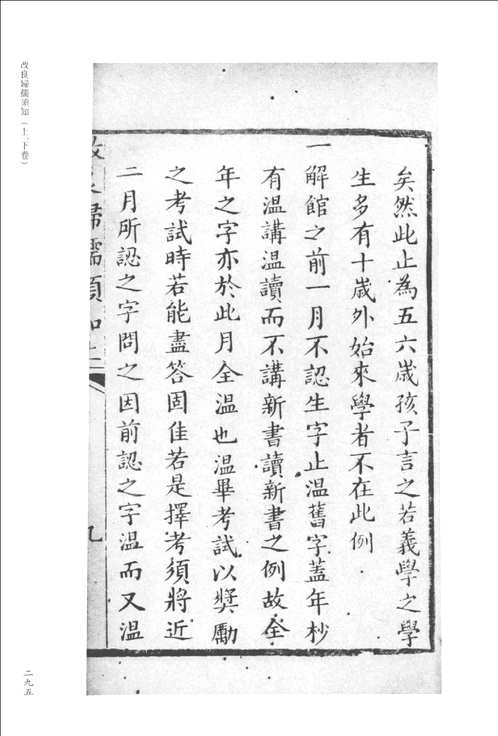 改良婦孺須知（上、下卷）
矣然此止為五六歲孩子言之若義學之學
生多有十歲外始來學者不在此例
一解館之前一月不認生字止溫舊字蓋年杪
有溫講溫讀而不講新書讀新書之例故全
年之字亦於此月全溫也溫畢考試以獎勵
之考試時若能盡答固佳若是擇考須將近
二月所認之字問之因前認之字溫而又溫
婦孺須知
九
二九五